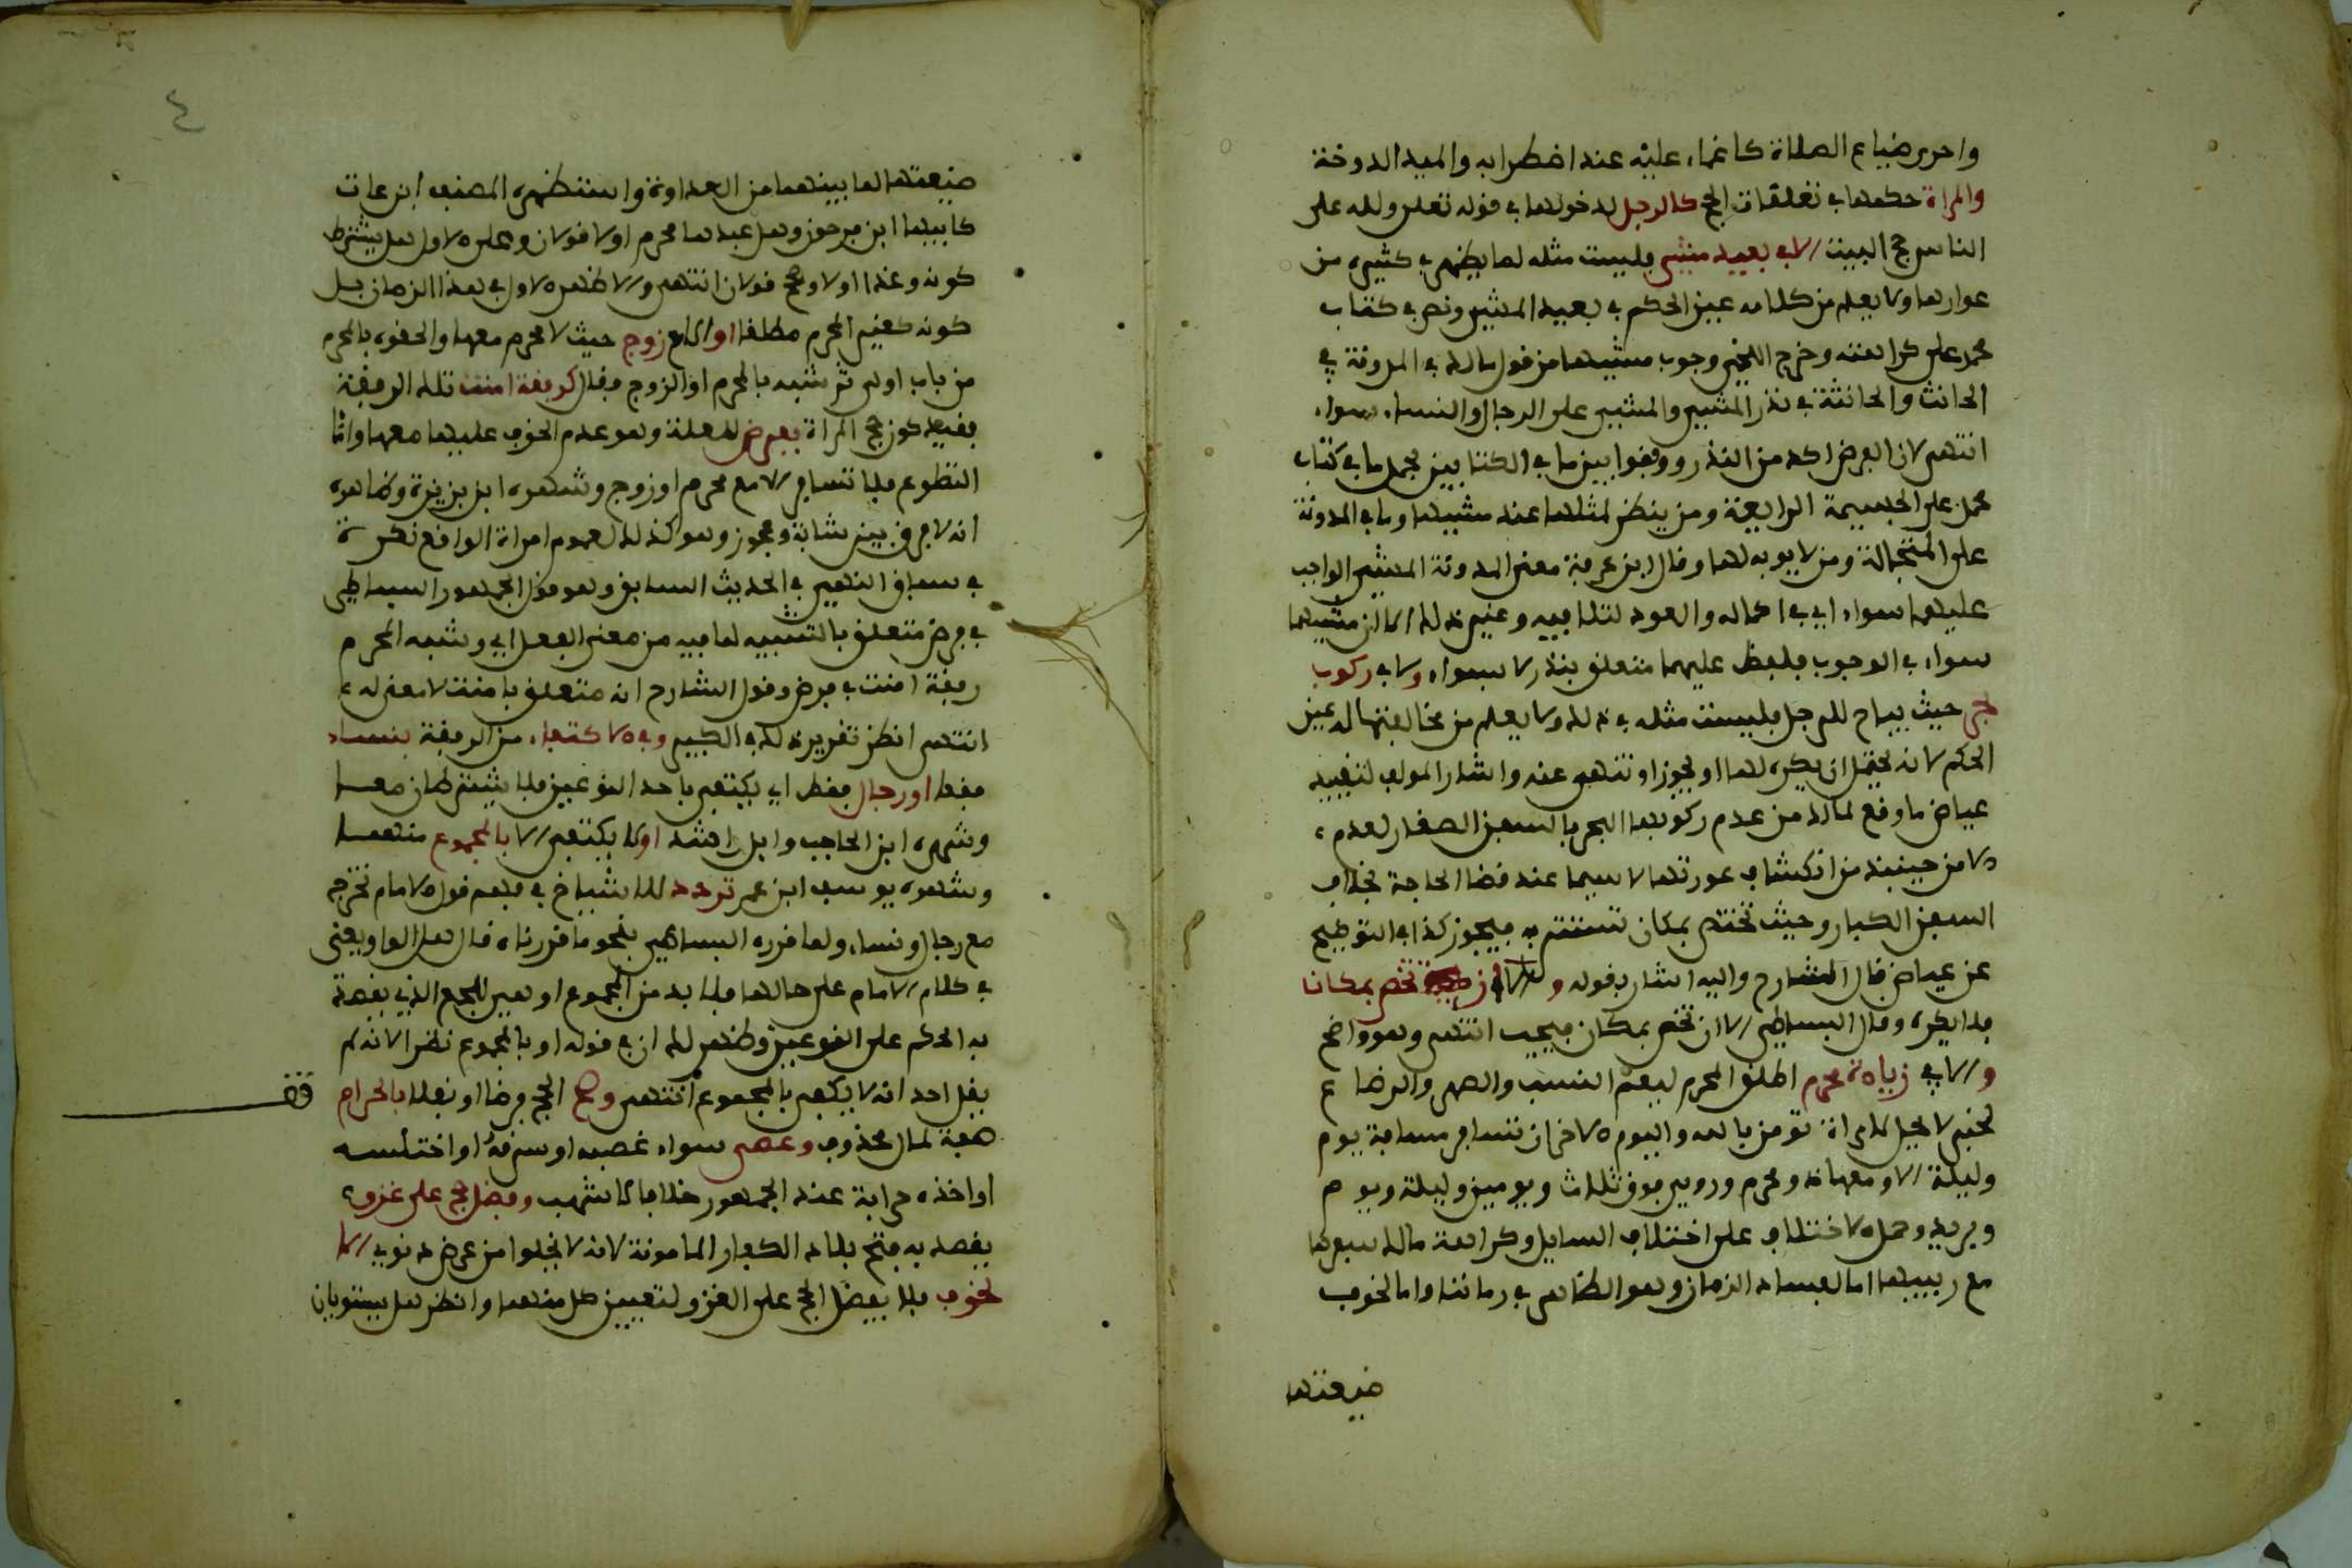 واحرى ضياع الصلاة كاغماء عليه عند اضطرابه والميد الدوخة
والمراة حكمها في تعلقات الحج كالرجل لدخولها في قوله تعلى ولله على
الناس حج البيت الا في بعيد مشي فليست مثله لما يظهر في كثير من
عوارها ولا يعلم من كلامه عين الحكم في بعيد المشي ونص في كتاب
محمد على كراهته وخرج اللخمي وجوب مشيها من قول مالك في المدونة في
الحانث والحانثة في نذر المشي والمشي على الرجال والنساء سواء
انتهى لان الفرض اكد من النذر ووفقوا بين ما في الكتابين بحمل ما في كتاب
محمد على الجسيمة الرايعة ومن ينظر لمثلها عند مشيها وما في المدونة
على المتجالة ومن لا يوبه لها وقال ابن عرفة معنى المدونة المشي الواجب
عليهما سواء اي في اكماله والعود لتلافيه وغير ذلك لا ان مشيهما
سواء في الوجوب فلفظ عليهما متعلق بنذر لا بسواء ولا في ركوب
بحر حيث يباح للرجل فليست مثله في ذلك ولا يعلم من مخالفتها له عين
الحكم لانه يحتمل ان يكره لها او يجوز او تنهى عنه واشار المولف لتقييد
عياض ما وقع لمالك من عدم ركوبها البحر بالسفن الصغار لعدم
الامن حينيذ من انكشاف عورتها لا سيما عند قضا الحاجة بخلاف
السفن الكبار وحيث تختص بمكان تستتر به فيجوز كذا في التوضيح
عن عياض قال الشارح واليه اشار بقوله الا ان تختص بمكان
فلا يكره وقال البساطي الا ان تختص بمكان فيجب انتهى وهو واضح
والا في زيادة محرم اطلق المحرم ليعم النسب والصهر والرضاع
لخبر لا يحل لامراة تومن بالله واليوم الاخر ان تسافر مسافة يوم
وليلة الا ومعها ذو محرم وروي فوق ثلاث ويومين وليلة ويوم
وبريد وحمل الاختلاف على اختلاف السايل وكراهة مالك سفرها
مع ربيبها اما لفساد الزمان وهو الظاهر في زماننا واما لخوف
ضيعتها
٤
ضيعتها لما بينهما من العداوة واستظهره المصنف ابن عات
كابيها ابن فرحون وهل عبدها محرم او لا قولان وعلى الاول هل يشترط
كونه وغدا او لا وصحح قولان انتهى والاظهر الاول في هذا الزمان بل
كونه كغير المحرم مطلقا او زوج حيث لا محرم معها والحقوه بالمحرم
من باب اولى ثم شبه بالمحرم او الزوج فقال كرفقة امنت تلك الرفقة
بقيد كون حج المراة بفرض لعلة وهو عدم الخوف عليها معها واما
التطوع فلا تسافر الا مع محرم او زوج وشهره ابن بزيزة وظاهره
انه لا فرق بين شابة وعجوز وهو كذلك لعموم امراة الواقع نكرة
في سياق النفي في الحديث السابق وهو قول الجمهور البساطي
في فرض متعلق بالتشبيه لما فيه من معنى الفعل اي وشبه المحرم
رفقة امنت في فرض وقول الشارح انه متعلق بامنت لا معنى له
انتهى انظر تقرير ذلك في الكبير وفي الاكتفاء من الرفقة بنساء
فقط او رجال فقط اي يكتفى باحد النوعين فلا يشترطان معا
وشهره ابن الحاجب وابن راشد او لا يكتفى الا بالمجموع منهما
وشهره يوسف ابن عمر تردد للاشياخ في فهم قول الامام تخرج
مع رجال ونساء ولما قرره البساطي بنحو ما قررناه قال هل الواو يعني
في كلام الامام على حالها فلا بد من المجموع او هي للجمع الذي يقصد
به الحكم على النوعين وظهر لك ان في قوله او بالمجموع نظرا لانه لم
يقل احد انه لا يكفي بالمجموع انتهى وصح الحج فرضا او نفلا بالحرام
قف
صفة لمال محذوف وعصى سواء غصبه او سرقه او اختلسه
او اخذه حرابة عند الجمهور خلافا لاشهب وفضل حج على غزو
يقصد به فتح بلاد الكفار المامونة لانه لا يخلوا من عرض دنوي الا
لخوف فلا يفضل الحج على الغزو لتعيين كل منهما وانظر هل يستويان